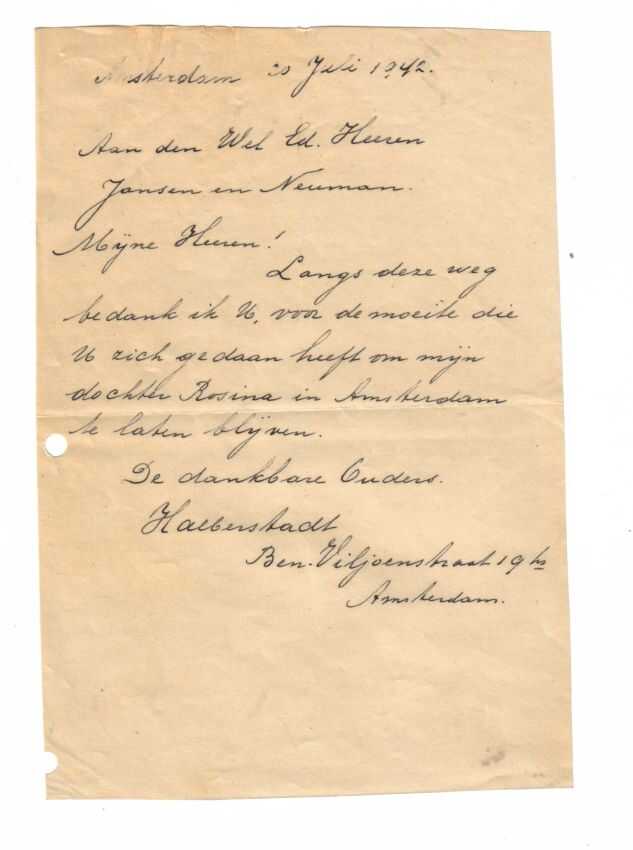 Amsterdam 20 Juli 1942.
Aan den Wel Ed. Heeren
Jansen en Neuman.
Mijne Heeren!
Langs deze weg
bedank ik U, voor de moeite die
U zich gedaan heeft om mijn
dochter Rosina in Amsterdam
te laten blijven.
De dankbare Ouders.
Halberstadt
Ben. Viljoenstraat 19 hs
Amsterdam.